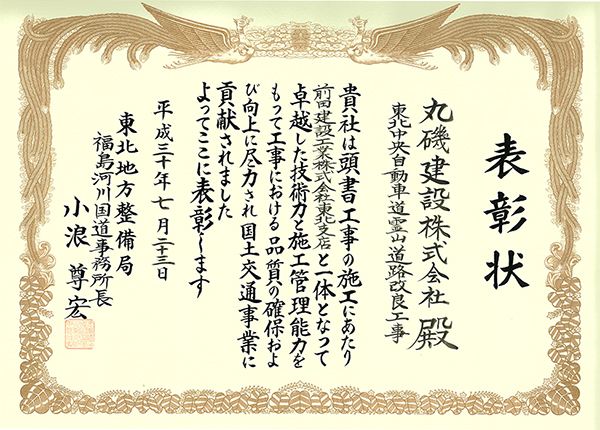 表彰状
丸磯建設株式会社 殿
東北中央自動車道霊山道路改良工事
貴社は頭書工事の施工にあたり
前田建設工業株式会社東北支店と一体となって
卓越した技術力と施工管理能力を
もって工事における品質の確保およ
び向上に尽力され国土交通事業に
貢献されました
よってここに表彰します
平成三十年七月二十三日
東北地方整備局
福島河川国道事務所長
小浪尊宏